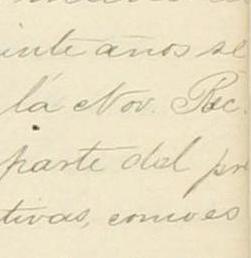 inte años se
la Nov. Rec.
parte del pr
tivas, como es